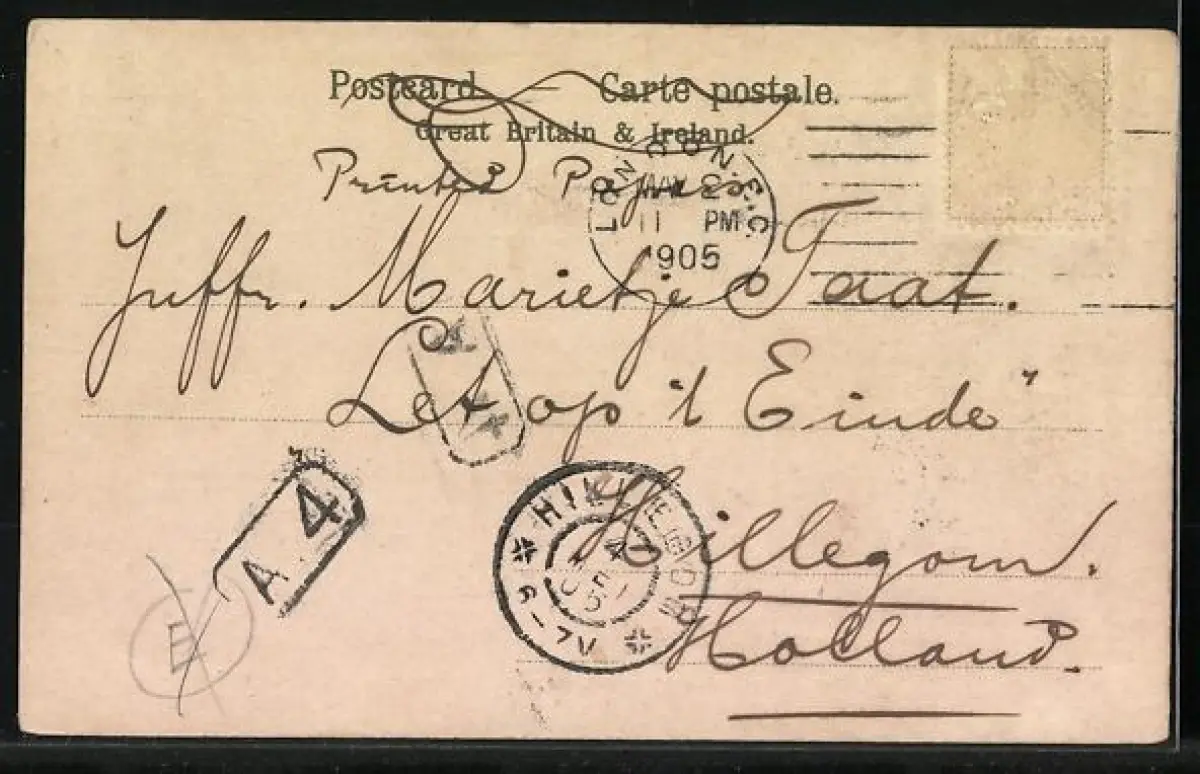 Postcard. — Carte postale.
Great Britain & Ireland.
Printed Papers.
LONDON. E.C.
11 PM
1905
Juffr. Marietje Taat.
Let op 't Einde"
Hillegom.
Holland.
A 4
HILLEGOM
4
E